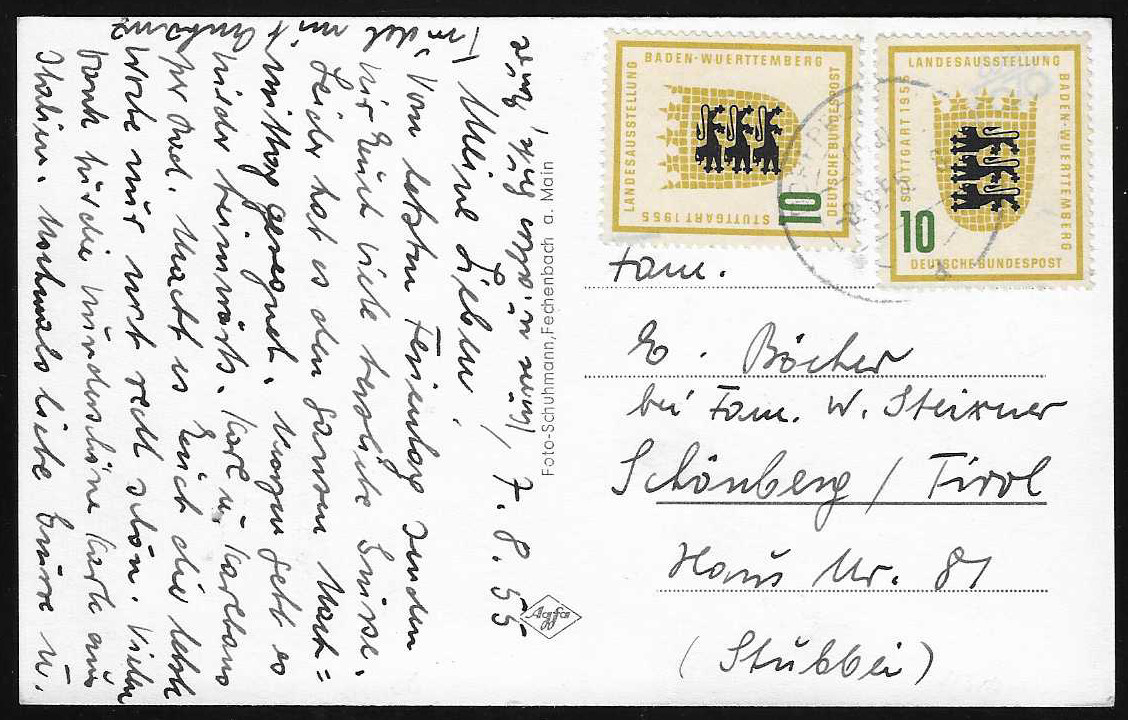 7. 8. 55
Meine Lieben!
Vom letzten Ferientag senden
wir Euch viele herzliche Grüsse.
Leider hat es den ganzen Nach=
mittag geregnet. Morgen geht es
wieder heimwärts. Karl u. Karlhans
per Rad. Macht es Euch die letzte
Woche nur noch recht schön. Vielen
Dank für die wunderschöne Karte aus
Italien. Nochmals liebe Grüsse u.
Foto-Schuhmann, Fechenbach a. Main
Agfa
LANDESAUSSTELLUNG
BADEN-WUERTTEMBERG
STUTTGART 1955
10
DEUTSCHE BUNDESPOST
LANDESAUSSTELLUNG
BADEN-WUERTTEMBERG
STUTTGART 1955
10
DEUTSCHE BUNDESPOST
Fam.
E. Böcher
bei Fam. W. Steixner
Schönberg / Tirol
Haus Nr. 81
(Stubbei)